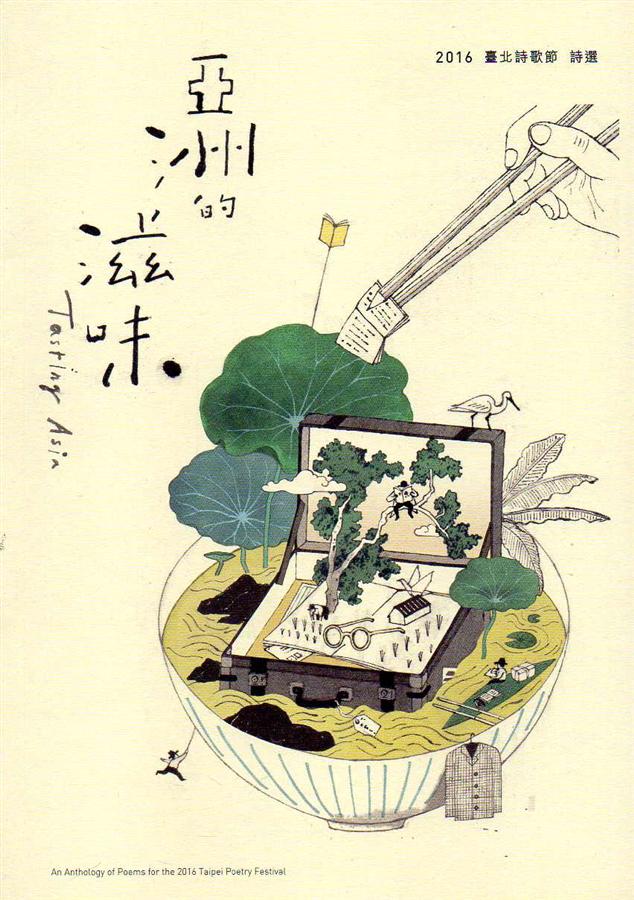 2016 臺北詩歌節 詩選
亞洲的
滋味
Tasting Asia
An Anthology of Poems for the 2016 Taipei Poetry Festival